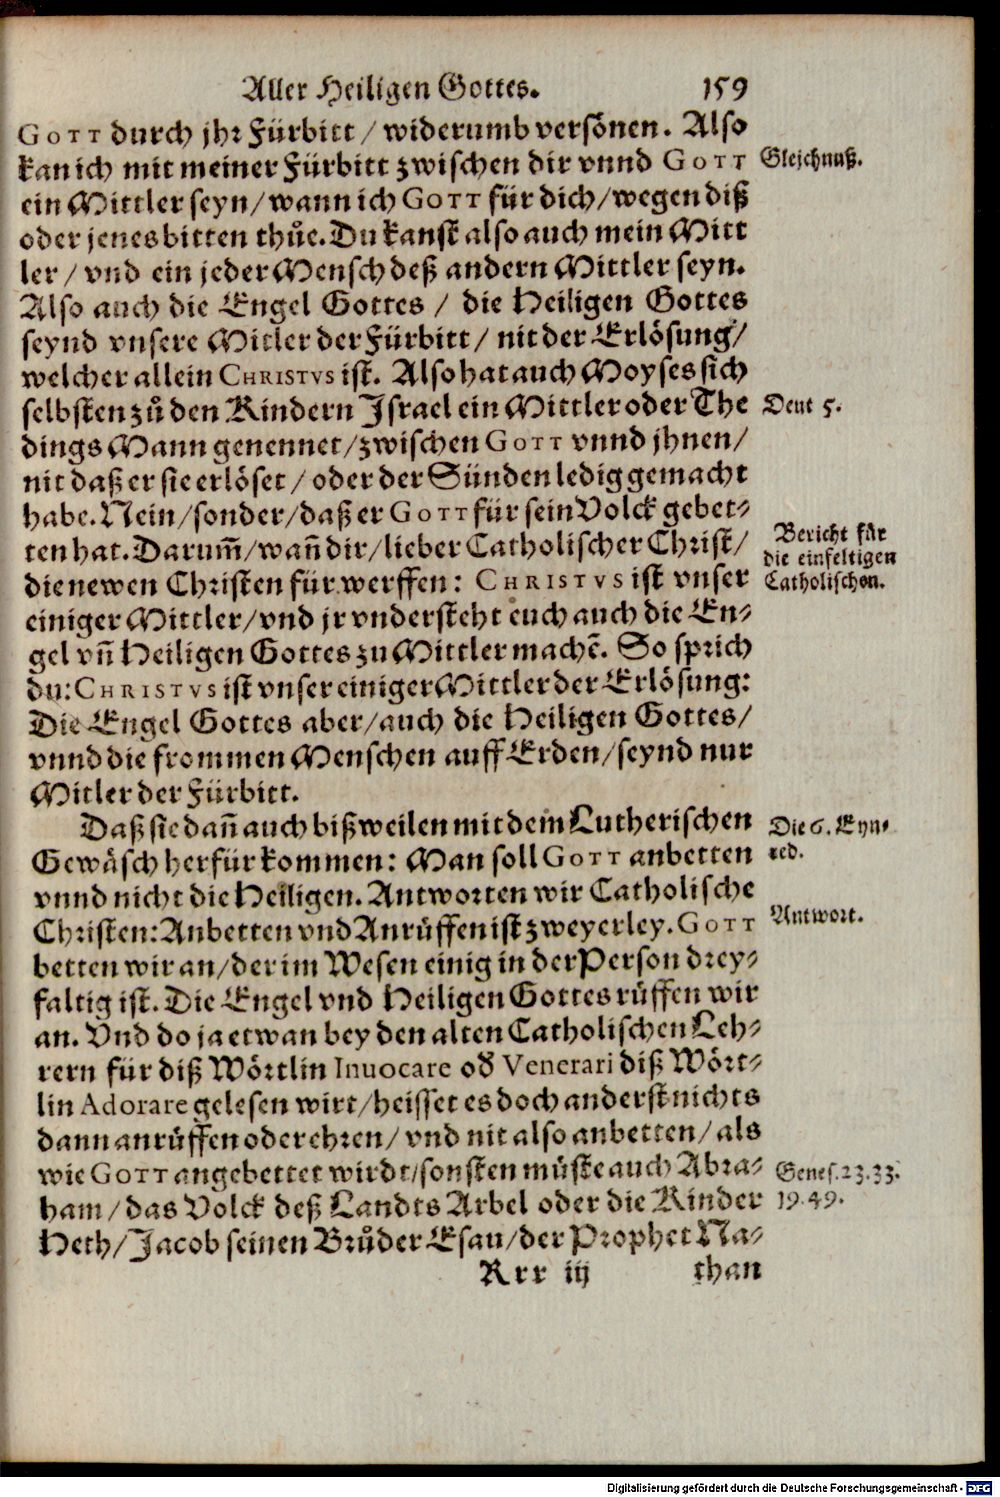 Aller Heiligen Gottes. 159
GOTT durch jhr Fürbitt / widerumb versönen. Also
kan ich mit meiner Fürbitt zwischen dir vnnd GOTT
Glejchnuß.
ein Mittler seyn / wann ich GOTT für dich / wegen diß
oder jenes bitten thuͤe. Du kanst also auch mein Mitt
ler / vnd ein jeder Mensch deß andern Mittler seyn.
Also auch die Engel Gottes / die Heiligen Gottes
seynd vnsere Mitler der Fürbitt / nit der Erlösung /
welcher allein CHRISTVS ist. Also hat auch Moyses sich
selbsten zuͦ den Kindern Israel ein Mittler oder The
Deut 5.
dings Mann genennet / zwischen GOTT vnnd jhnen /
nit daß er sie erlöset / oder der Sünden ledig gemacht
habe. Nein / sonder / daß er GOTT für sein Volck gebet-
ten hat. Darum̃ / wañ dir / lieber Catholischer Christ /
Bericht für
die einfeltigen
Catholischen.
die newen Christen für werffen: CHRISTVS ist vnser
einiger Mittler / vnd jr vndersteht euch auch die En-
gel vñ Heiligen Gottes zu Mittler machẽ. So sprich
du: CHRISTVS ist vnser einiger Mittler der Erlösung:
Die Engel Gottes aber / auch die Heiligen Gottes /
vnnd die frommen Menschen auff Erden / seynd nur
Mitler der Fürbitt.
Daß sie dañ auch bißweilen mit dem Lutherischen
Die 6. Eyn-
red.
Gewäsch herfür kommen: Man soll GOTT anbetten
vnnd nicht die Heiligen. Antworten wir Catholische
Antwort.
Christen: Anbetten vnd Anrüffen ist zweyerley. GOTT
betten wir an / der im Wesen einig in der Person drey-
faltig ist. Die Engel vnd Heiligen Gottes rüffen wir
an. Vnd do ja etwan bey den alten Catholischen Leh-
rern für diß Wörtlin Inuocare od̕ Venerari diß Wört-
lin Adorare gelesen wirt / heisset es doch anderst nichts
dann anrüffen oder ehren / vnd nit also anbetten / als
wie GOTT angebettet wirdt / sonsten müste auch Abra-
Genes. 23. 33.
19. 49.
ham / das Volck deß Landts Arbel oder die Kinder
Heth / Jacob seinen Bruͦder Esau / der Prophet Na-
Rrr iij than
Digitalisierung gefördert durch die Deutsche Forschungsgemeinschaft - DFG